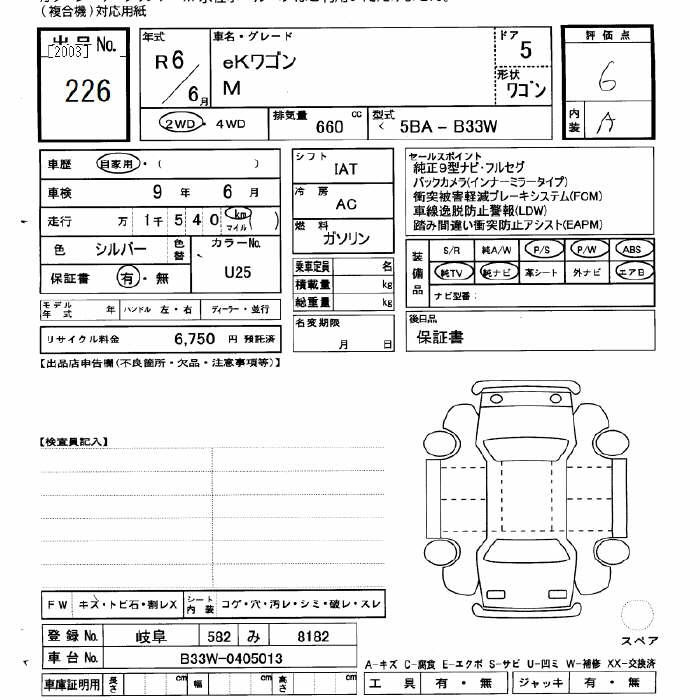 (複合機)対応用紙
出品No.
[2003]
226
年式
R6/6月
車名・グレード
eKワゴン
M
ドア
5
形状
ワゴン
評価点
6
内装
A
2WD・4WD
排気量
660 cc
型式
< 5BA - B33W
車歴 自家用・( )
車検 9年 6月
走行 万 1千 5 4 0 (km マイル)
色 シルバー 色替
カラーNo.
U25
保証書 有・無
シフト
IAT
冷房
AC
燃料
ガソリン
乗車定員 名
積載量 kg
総重量 kg
セールスポイント
純正9型ナビ・フルセグ
バックカメラ(インナーミラータイプ)
衝突被害軽減ブレーキシステム(FCM)
車線逸脱防止警報(LDW)
踏み間違い衝突防止アシスト(EAPM)
装備品
S/R 純A/W P/S P/W ABS
純TV 純ナビ 革シート 外ナビ エアB
ナビ型番:
モデル年式 年 ハンドル 左・右 ディーラー・並行
リサイクル料金 6,750 円 預託済
名変期限
月 日
後日品
保証書
【出品店申告欄(不良箇所・欠品・注意事項等)】
【検査員記入】
FW キズ・トビ石・割レX
シート内装 コゲ・穴・汚レ・シミ・破レ・スレ
登録No. 岐阜 582 み 8182
車台No. B33W-0405013
車庫証明用 長さ cm 幅 cm 高さ cm
スペア
A-キズ C-腐食 E-エクボ S-サビ U-凹ミ W-補修 XX-交換済
工具 有・無 ジャッキ 有・無